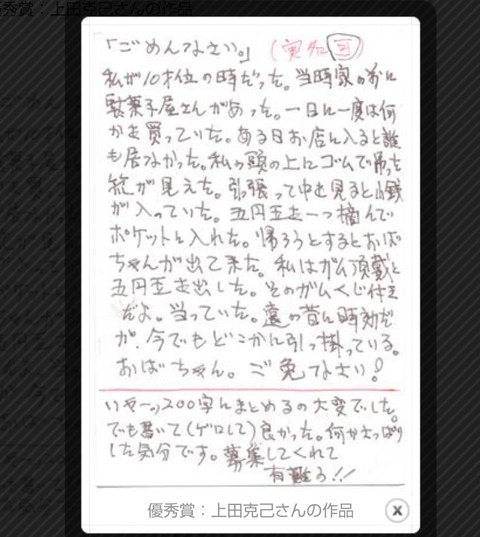 優秀賞：上田克己さんの作品
「ごめんなさい。」（実名可）
私が10才位の時だった。当時家の前に
駄菓子屋さんがあった。一日に一度は何
かを買っていた。ある日お店に入ると誰
も居なかった。私の頭の上にゴムで吊った
籠が見えた。引張って中を見ると小銭
が入っていた。五円玉を一つ摘んで
ポケットに入れた。帰ろうとするとおば
ちゃんが出て来た。私はガム頂戴と
五円玉を出した。そのガムくじ付き
だよ。当っていた。遠の昔に時効だ
が、今でもどこかに引っ掛っている。
おばちゃん。ご免なさい！
いやーッ200字にまとめるの大変でした。
でも書いて（ゲロして）良かった。何かさっぱり
した気分です。募集してくれて
有難う!!
優秀賞：上田克己さんの作品
x